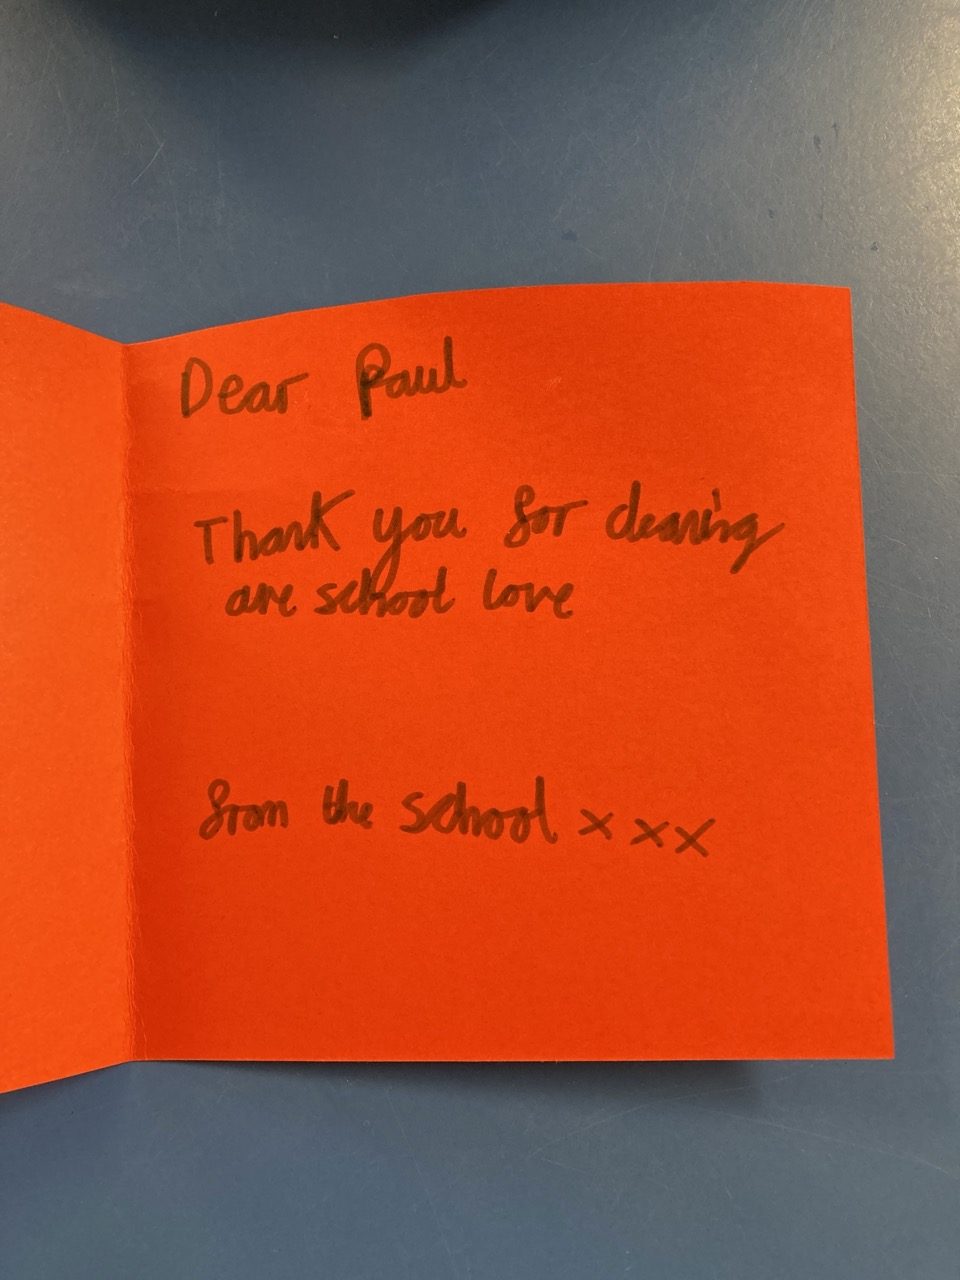 Dear Paul
Thank you for cleaning
are school love
from the school x x x